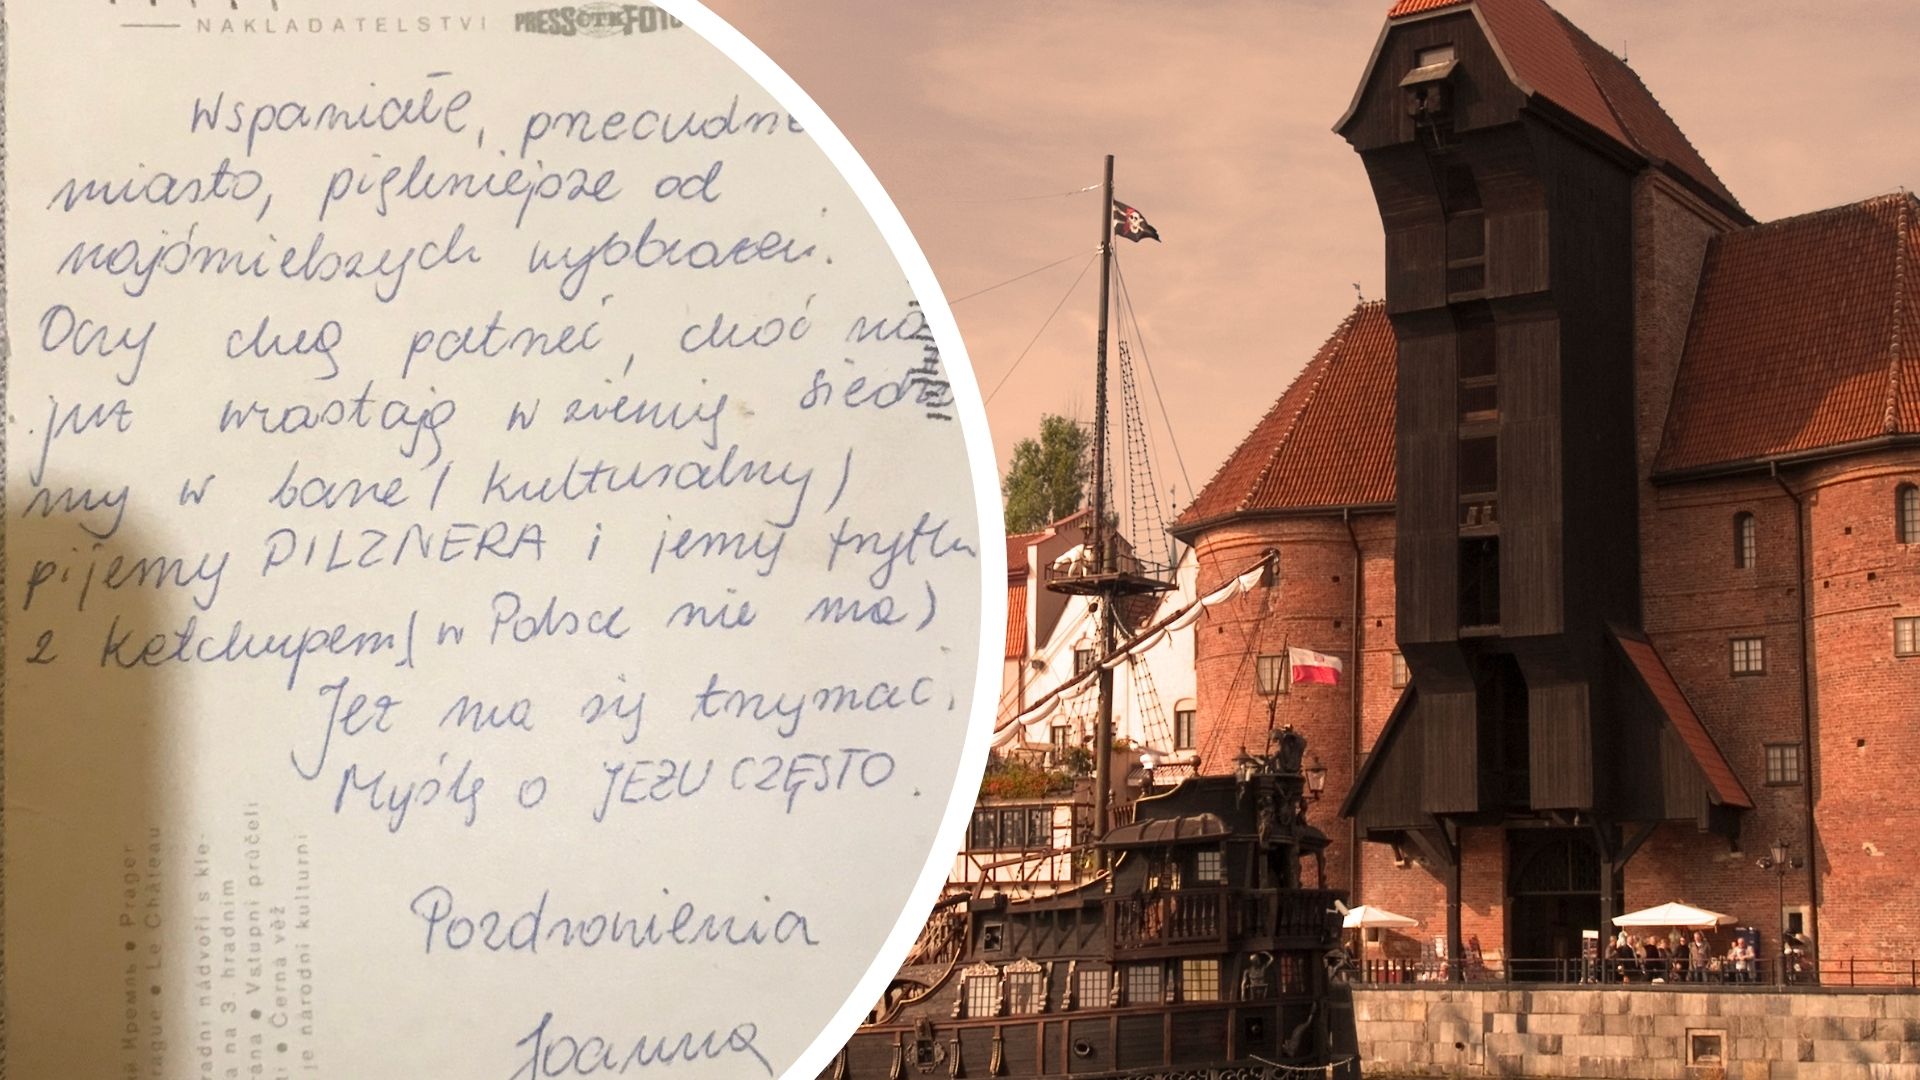 NAKLADATELSTVÍ PRESS ČTK FOTO
Wspaniałe, przecudne
miasto, piękniejsze od
najśmielszych wyobrażeń.
Oczy chcą patrzeć, choć nogi
już wrastają w ziemię. Siedzi
my w barze (kulturalny)
pijemy PILZNERA i jemy frytki
z ketchupem (w Polsce nie ma)
Jeż ma się trzymać.
Myślę o JEŻU CZĘSTO.
Pozdrowienia
Joanna
Кремль ● Prager
Prague ● Le Château
hradní nádvoří s kle-
na 3. hradním
● Vstupní průčelí
● Černá věž
je národní kulturní